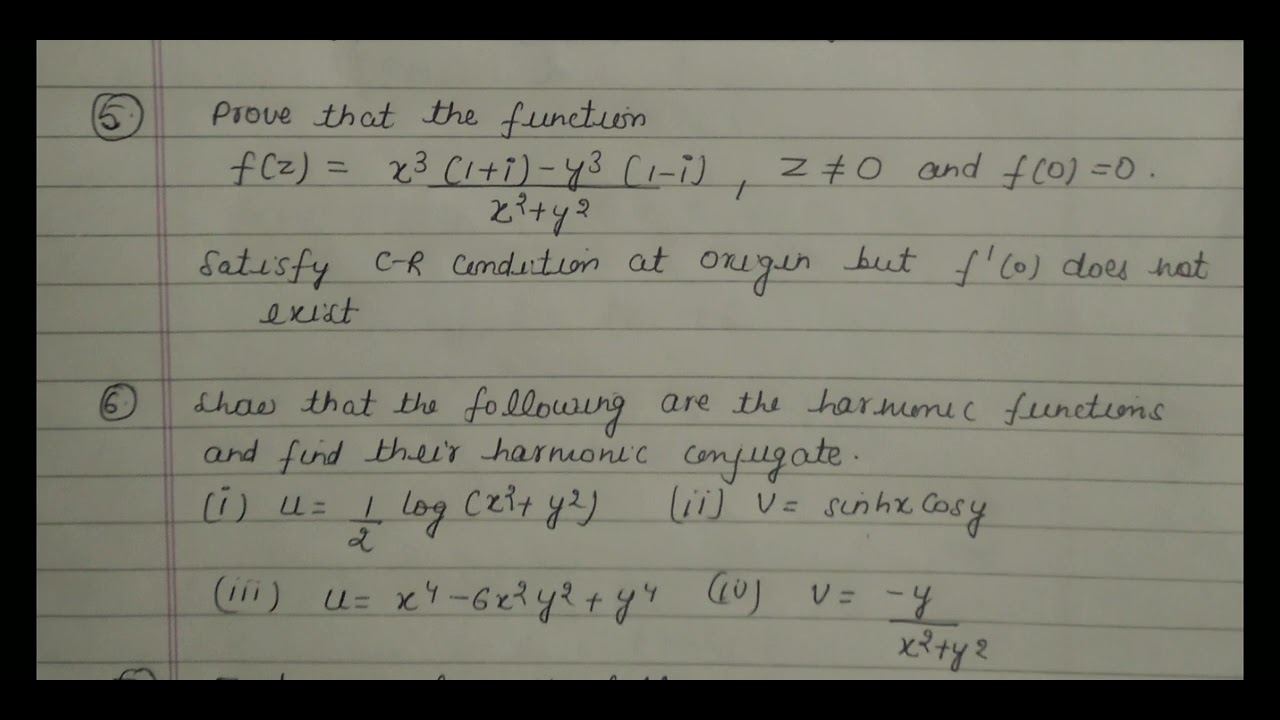 5. Prove that the function
f(z) = x³ (1+i) - y³ (1-i) / x²+y² , z ≠ 0 and f(0) = 0.
Satisfy C-R condition at origin but f'(0) does not
exist
6. Show that the following are the harmonic functions
and find their harmonic conjugate.
(i) u = 1/2 log (x²+ y²) (ii) v = sinhx cosy
(iii) u = x⁴ - 6x²y² + y⁴ (iv) v = -y / x²+y²